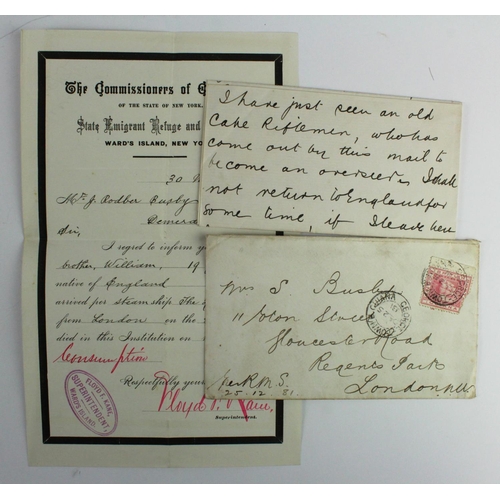 The Commissioners of
OF THE STATE OF NEW YORK.
State Emigrant Refuge and
WARD'S ISLAND, NEW YO
30
Mr. J. Rodber Busby
Demera
Sir,
I regret to inform yo
brother, William, 19
native of England
arrived per steam ship The
from London on the
died in this Institution on
Consumption
Respectfully your
Superintendent.
FLOYD T. KANE,
SUPERINTENDENT
WARD'S ISLAND.
I have just seen an old
Cape Riflemen, who has
come out by this mail to
become an overseer. I shall
not return to England for
some time, if I leave here
Mrs S. Busby
11 Bolton Street
Gloucester Road
Regents Park
London NW
per R.M.S.
25.12.81